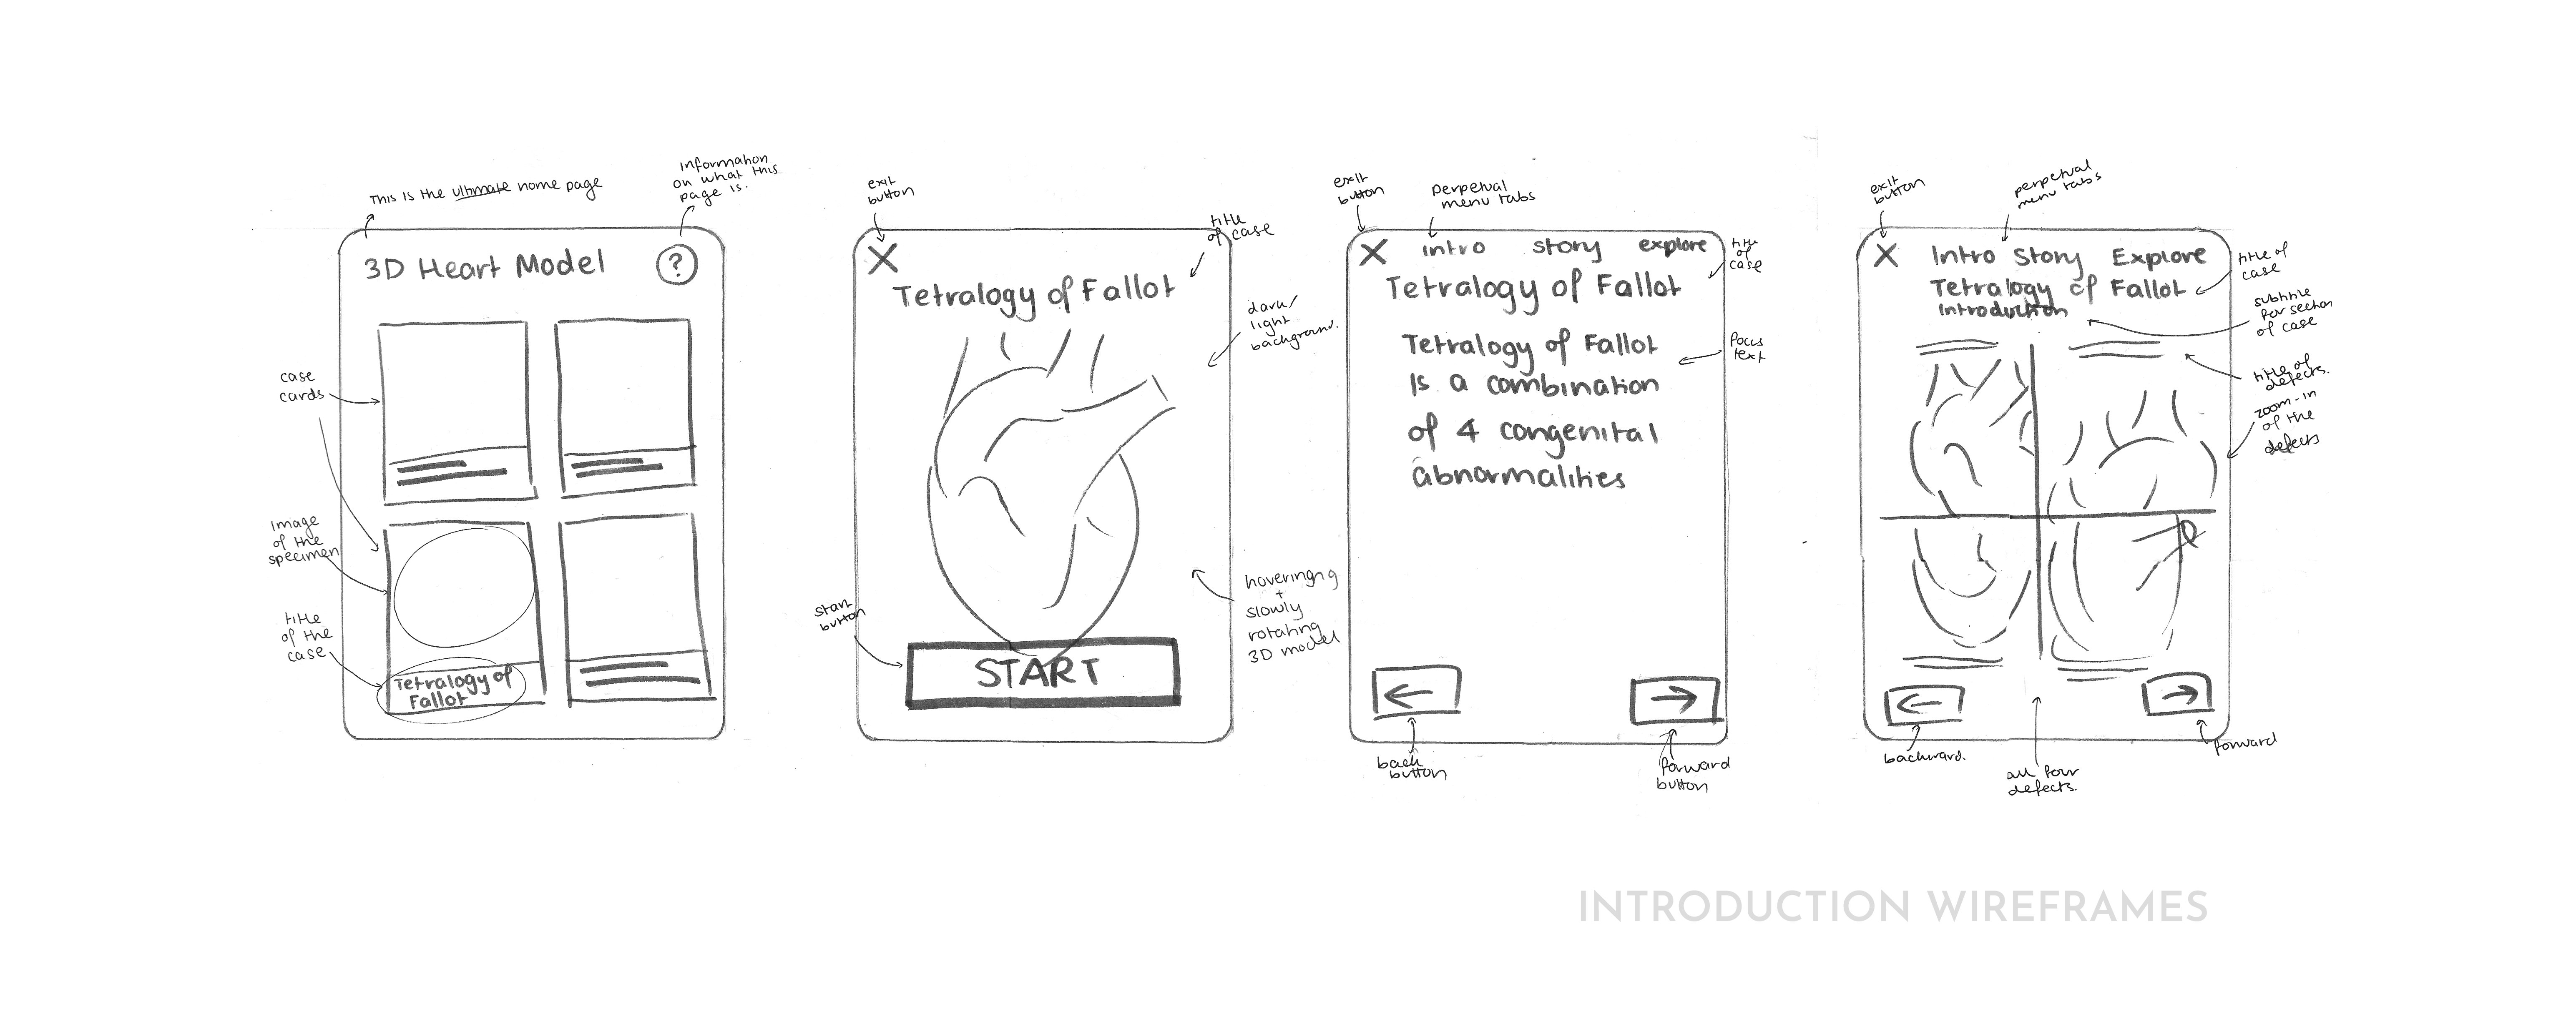 This is the ultimate home page
information
on what this
page is.
3D Heart Model
?
case
cards
image
of the
specimen
title
of the
case
Tetralogy of
Fallot
exit
button
title
of case
X
Tetralogy of Fallot
dark/
light
background.
hovering
+
slowly
rotating
3D model
start
button
START
exit
button
perpetual
menu tabs
X intro story explore
title
of
case
Tetralogy of Fallot
Tetralogy of Fallot
is a combination
of 4 congenital
abnormalities
focus
text
back
button
forward
button
exit
button
perpetual
menu tabs
X Intro Story Explore
Tetralogy of Fallot
Introduction
title of
case
subtitle
for section
of case
title of
defects.
zoom-in
of the
defects
backward.
all four
defects.
forward
INTRODUCTION WIREFRAMES